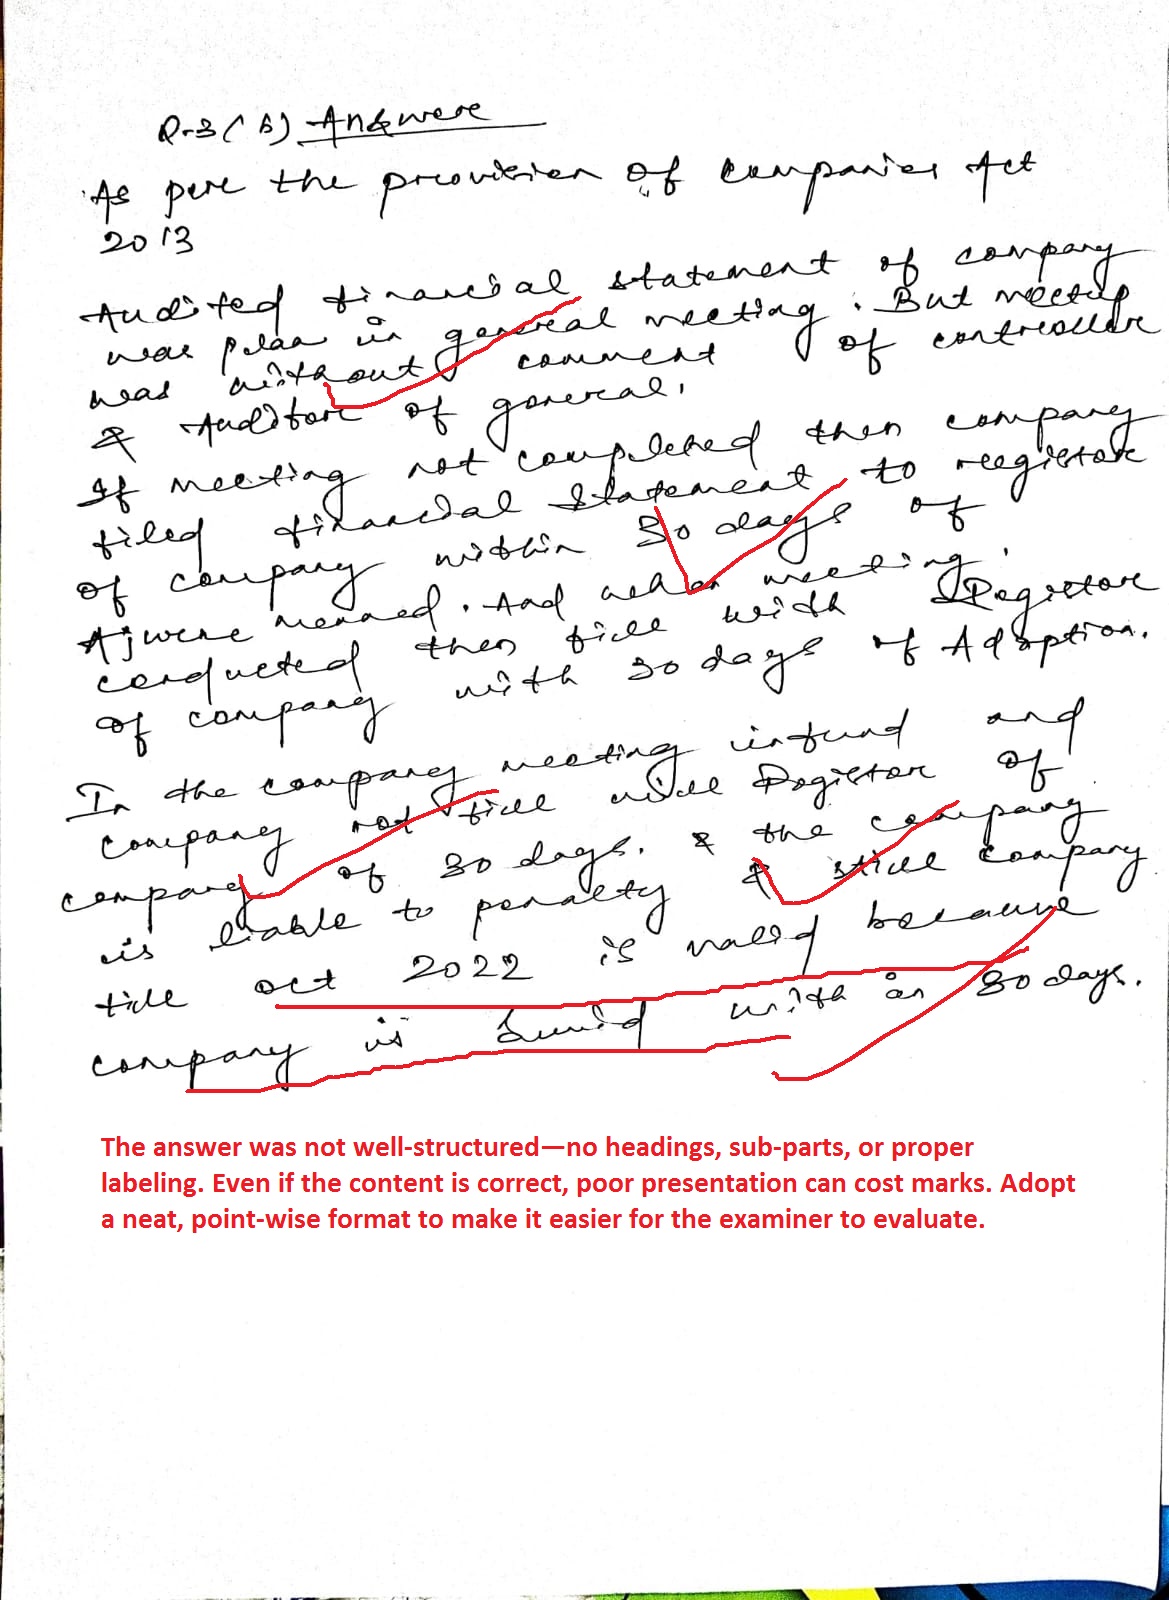 Q-3 (b) Answere
As pere the provision of companies Act
2013
Audited financial statement of company
was in general meeting. But meetup
was without comment of controller
& Auditore of general.
If meeting not completed then company
filed financial statement to regictore
of company within 30 days of
And meeting.
conducted then fill with Regictore
of company with 30 days of Adoption.
In the company meeting and
company not fill Regictore of
company of 30 days. & the company
is liable to penalty & still company
till oct 2022 is valid because
company is with in 30 days.
The answer was not well-structured—no headings, sub-parts, or proper
labeling. Even if the content is correct, poor presentation can cost marks. Adopt
a neat, point-wise format to make it easier for the examiner to evaluate.